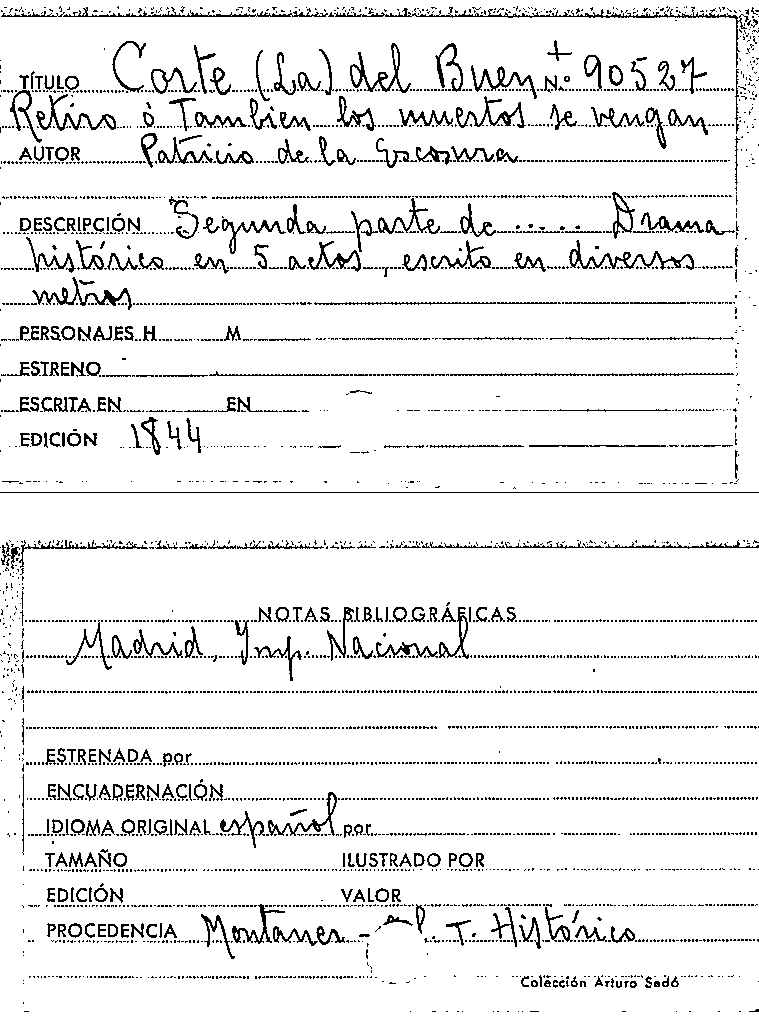 TÍTULO Corte (La) del Buen N.º 90527
Retiro ó Tambien los muertos se vengan
AUTOR Patricio de la Escosura
DESCRIPCIÓN Segunda parte de ..... Drama
histórico en 5 actos, escrito en diversos
metros
PERSONAJES H M
ESTRENO
ESCRITA EN EN
EDICIÓN 1844
NOTAS BIBLIOGRÁFICAS
Madrid, Imp. Nacional
ESTRENADA por
ENCUADERNACIÓN
IDIOMA ORIGINAL español por
TAMAÑO ILUSTRADO POR
EDICIÓN VALOR
PROCEDENCIA Montaner - T. Histórico
Colección Arturo Sedó